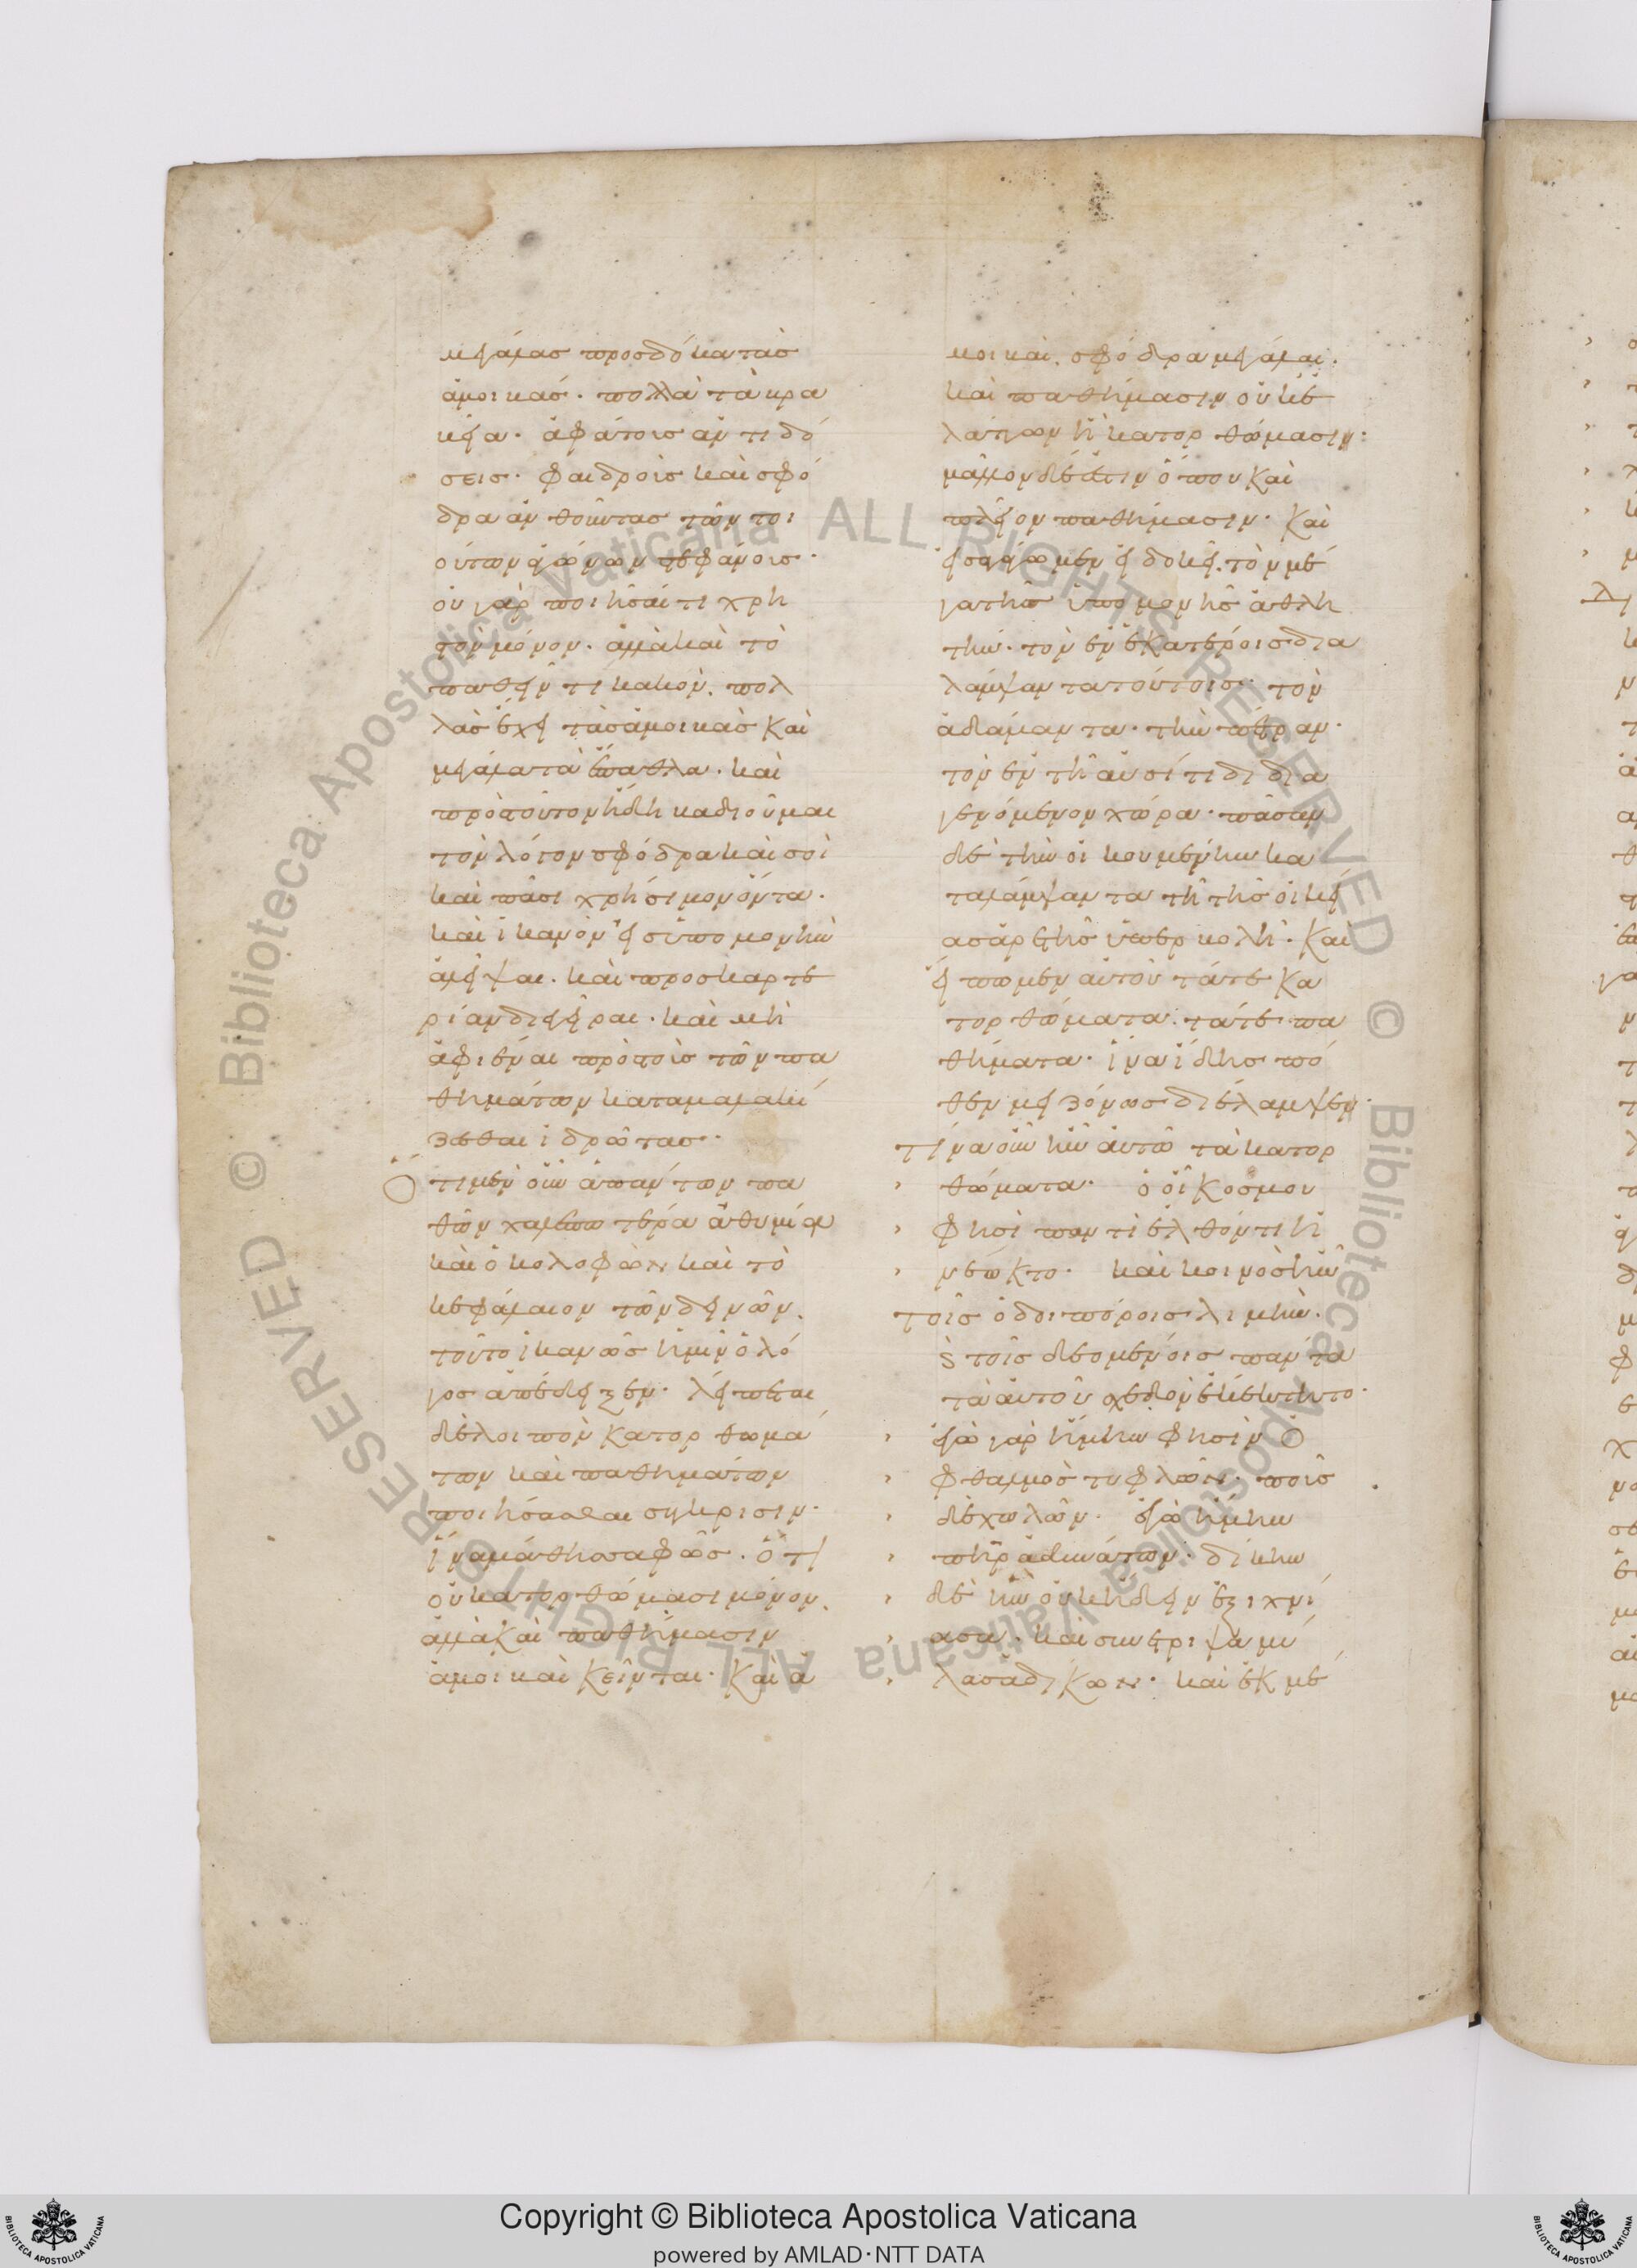 μεγάλας προσδόκα τὰς
ἀμοιβάς· πολλὰ τὰ βρα
βεῖα· ἀφάτοις ἀντιδό
σεις· φαιδροῖς καὶ σφό
δρα ἀνθοῦντας τῶν τοι
ούτων ἀγώνων στεφάνοις·
οὐ γὰρ ποιῆσαί τι χρη
στὸν μόνον· ἀλλὰ καὶ τὸ
παθεῖν τι κακὸν, πολ
λὰς ἔχει τὰς ἀμοιβὰς καὶ
μεγάλα τὰ ἔπαθλα· καὶ
πρὸς τοῦτον ἤδη καθιοῦμαι
τὸν λόγον σφόδρα καὶ σοὶ
καὶ πᾶσι χρήσιμον ὄντα·
καὶ ἱκανὸν εἰς ὑπομονὴν
ἀλεῖψαι· καὶ προσκαρτε
ρίαν διεγεῖραι· καὶ μὴ
ἀφιέναι πρὸς τοὺς τῶν πα
θημάτων καταμαλακί
ζεσθαι ἱδρῶτας·
Ὅτι μὲν οὖν ἁπάντων πα
θῶν χαλεπωτέρα ἀθυμία
καὶ ὁ κολοφὼν καὶ τὸ
κεφάλαιον τῶν δεινῶν,
τοῦτο ἱκανῶς ἡμῖν ὁ λό
γος ἀπέδειξεν· λείπεται
δὲ λοιπὸν κατορθωμά
των καὶ παθημάτων
ποιήσασθαι σύγκρισιν·
ἵνα μάθῃς σαφῶς· ὅτι
οὐ κατορθώμασι μόνον,
ἀλλὰ καὶ παθήμασιν
ἀμοιβαὶ κεῖνται· καὶ ἀ
μοιβαὶ σφόδρα μεγάλαι·
καὶ παθήμασιν οὐκ ἔ
λαττον ἢ κατορθώμασιν·
μᾶλλον δὲ ἔστιν ὅπου καὶ
πλεῖον παθήμασιν· καὶ
εἰσαγάγωμεν εἰ δοκεῖ, τὸν μέ
γα τῆς ὑπομονῆς ἀθλη
τὴν· τὸν ἐν ἑκατέροις δια
λάμψαντα τούτοις· τὸν
ἀδάμαντα· τὴν πέτραν·
τὸν ἐν τῇ αὐσίτιδι δια
γενόμενον χώρα· πᾶσαν
δὲ τὴν οἰκουμένην κα
ταλάμψαντα τῇ τῆς οἰκεί
ας ἀρετῆς ὑπερβολῇ· καὶ
εἴπωμεν αὐτοῦ τά τε κα
τορθώματα· τά τε πα
θήματα· ἵνα εἴδῃς πό
θεν μειζόνως διέλαμψεν·
Τίνα οὖν ἦν αὐτῶ τὰ κατορ
θώματα· ὁ οἶκός μου
φησὶ παντὶ ἐλθόντι ἠ
νέωκτο· καὶ κοινὸς ἦν
τοῖς ὁδοιπόροις λιμὴν·
καὶ τοῖς δεομένοις πάντα
τὰ αὐτοῦ σχεδὸν ἐκέκτητο·
ἐγὼ γὰρ ἤμην φησὶν ὀ
φθαλμὸς τυφλῶν· ποὺς
δὲ χωλῶν· ἐγὼ ἤμην
πατὴρ ἀδυνάτων· δίκην
δὲ ἣν οὐκ ᾔδειν ἐξιχνί
ασα· καὶ συνέτριψα μύ
λας ἀδίκων· καὶ ἐκ μέ